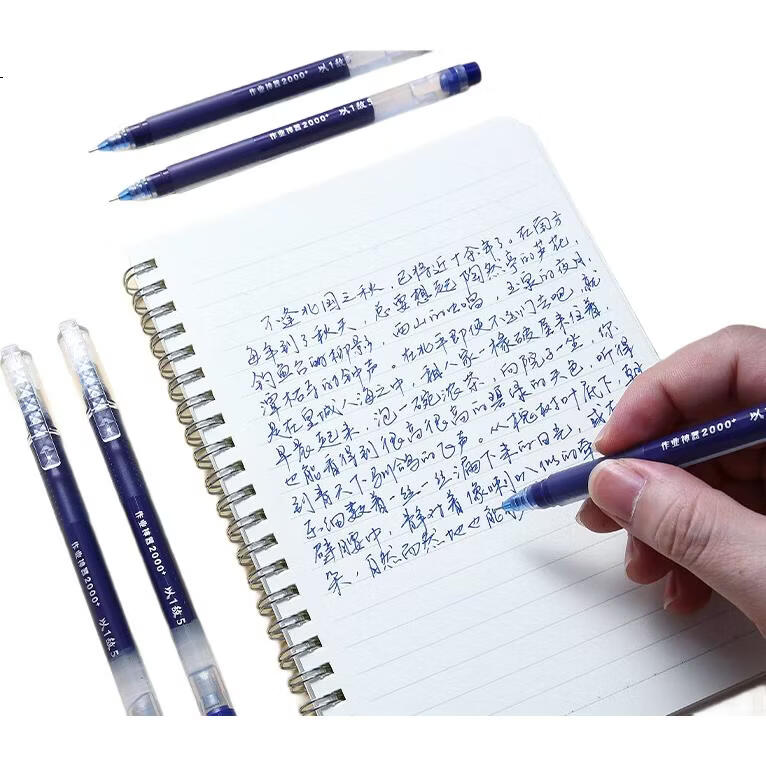 作业神器2000+ 以1敌5
作业神器2000+ 以1敌5
不逢北国之秋，已将近十余年了。在南方
每年到了秋天，总要想起陶然亭的芦花，
钓鱼台的柳影，西山的虫唱，玉泉的夜月，
潭柘寺的钟声。在北平即使不出门去吧，就
是在皇城人海之中，租人家一椽破屋来住着，
早晨起来，泡一碗浓茶，向院子一坐，你
也能看得到很高很高的碧绿的天色，听得
到青天下驯鸽的飞声。从槐树叶底下，朝
东细数着一丝一丝漏下来的日光，或在
壁腰中，静对着像喇叭似的牵
朵，自然而然地也能
作业神器2000+ 以1
作业神器2000+ 以1敌5
作业神器2000+ 以1敌5